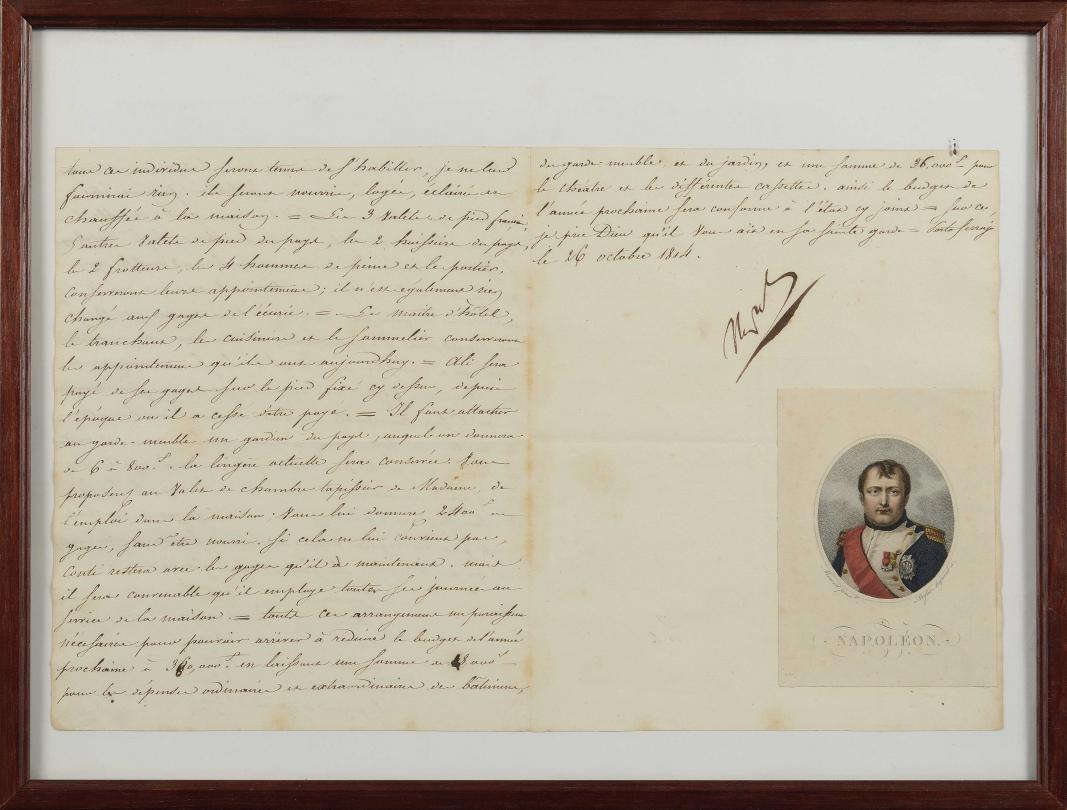 tous ces individus seront tenus de s'habiller, je ne leur
fournirai rien. ils seront nourris, logés, éclairés et
chauffés à la maison. = Les 3 Valets de pied français,
3 autres Valets de pied du pays, les 2 huissiers du pays,
les 2 frotteurs, les 4 hommes de peine et le portier,
conserveront leurs appointemens; il n'est également rien
changé aux gages de l'écurie. = Le maitre d'hôtel,
le tranchant, le cuisinier et le sommelier conserveront
les appointemens qu'ils ont aujourd'huy. = Ali sera
payé de ses gages sur le pied fixé cy dessus, depuis
l'époque ou il a cessé d'être payé. = Il faut attacher
au garde-meuble un gardien du pays, auquel on donnera
de 6 à 800f. la lingère actuelle sera conservée. Vous
proposerez au Valet de chambre tapissier de Madame, de
l'emploi dans la maison. Vous lui donnerez 2400f de
gages, sans être nourri. Si cela ne lui convient pas,
Conti restera avec les gages qu'il à maintenant. mais
il sera convenable qu'il employe toutes ses journées au
service de la maison. = touts ces arrangemens me paraissent
nécessaires pour pouvoir arriver à réduire le budget de l'année
prochaine à 360,000f. en laissant une somme de 18,000f
pour les dépenses ordinaires et extraordinaires des bâtimens,
du garde meuble et du jardin, et une somme de 36,000f pour
le théâtre et les différentes cassettes. ainsi le budget de
l'année prochaine sera conforme à l'état cy joint = sur ce,
je prie Dieu qu'il Vous ait en sa sainte garde = Porto ferrajo
le 26 octobre 1814.
NAPOLÉON.